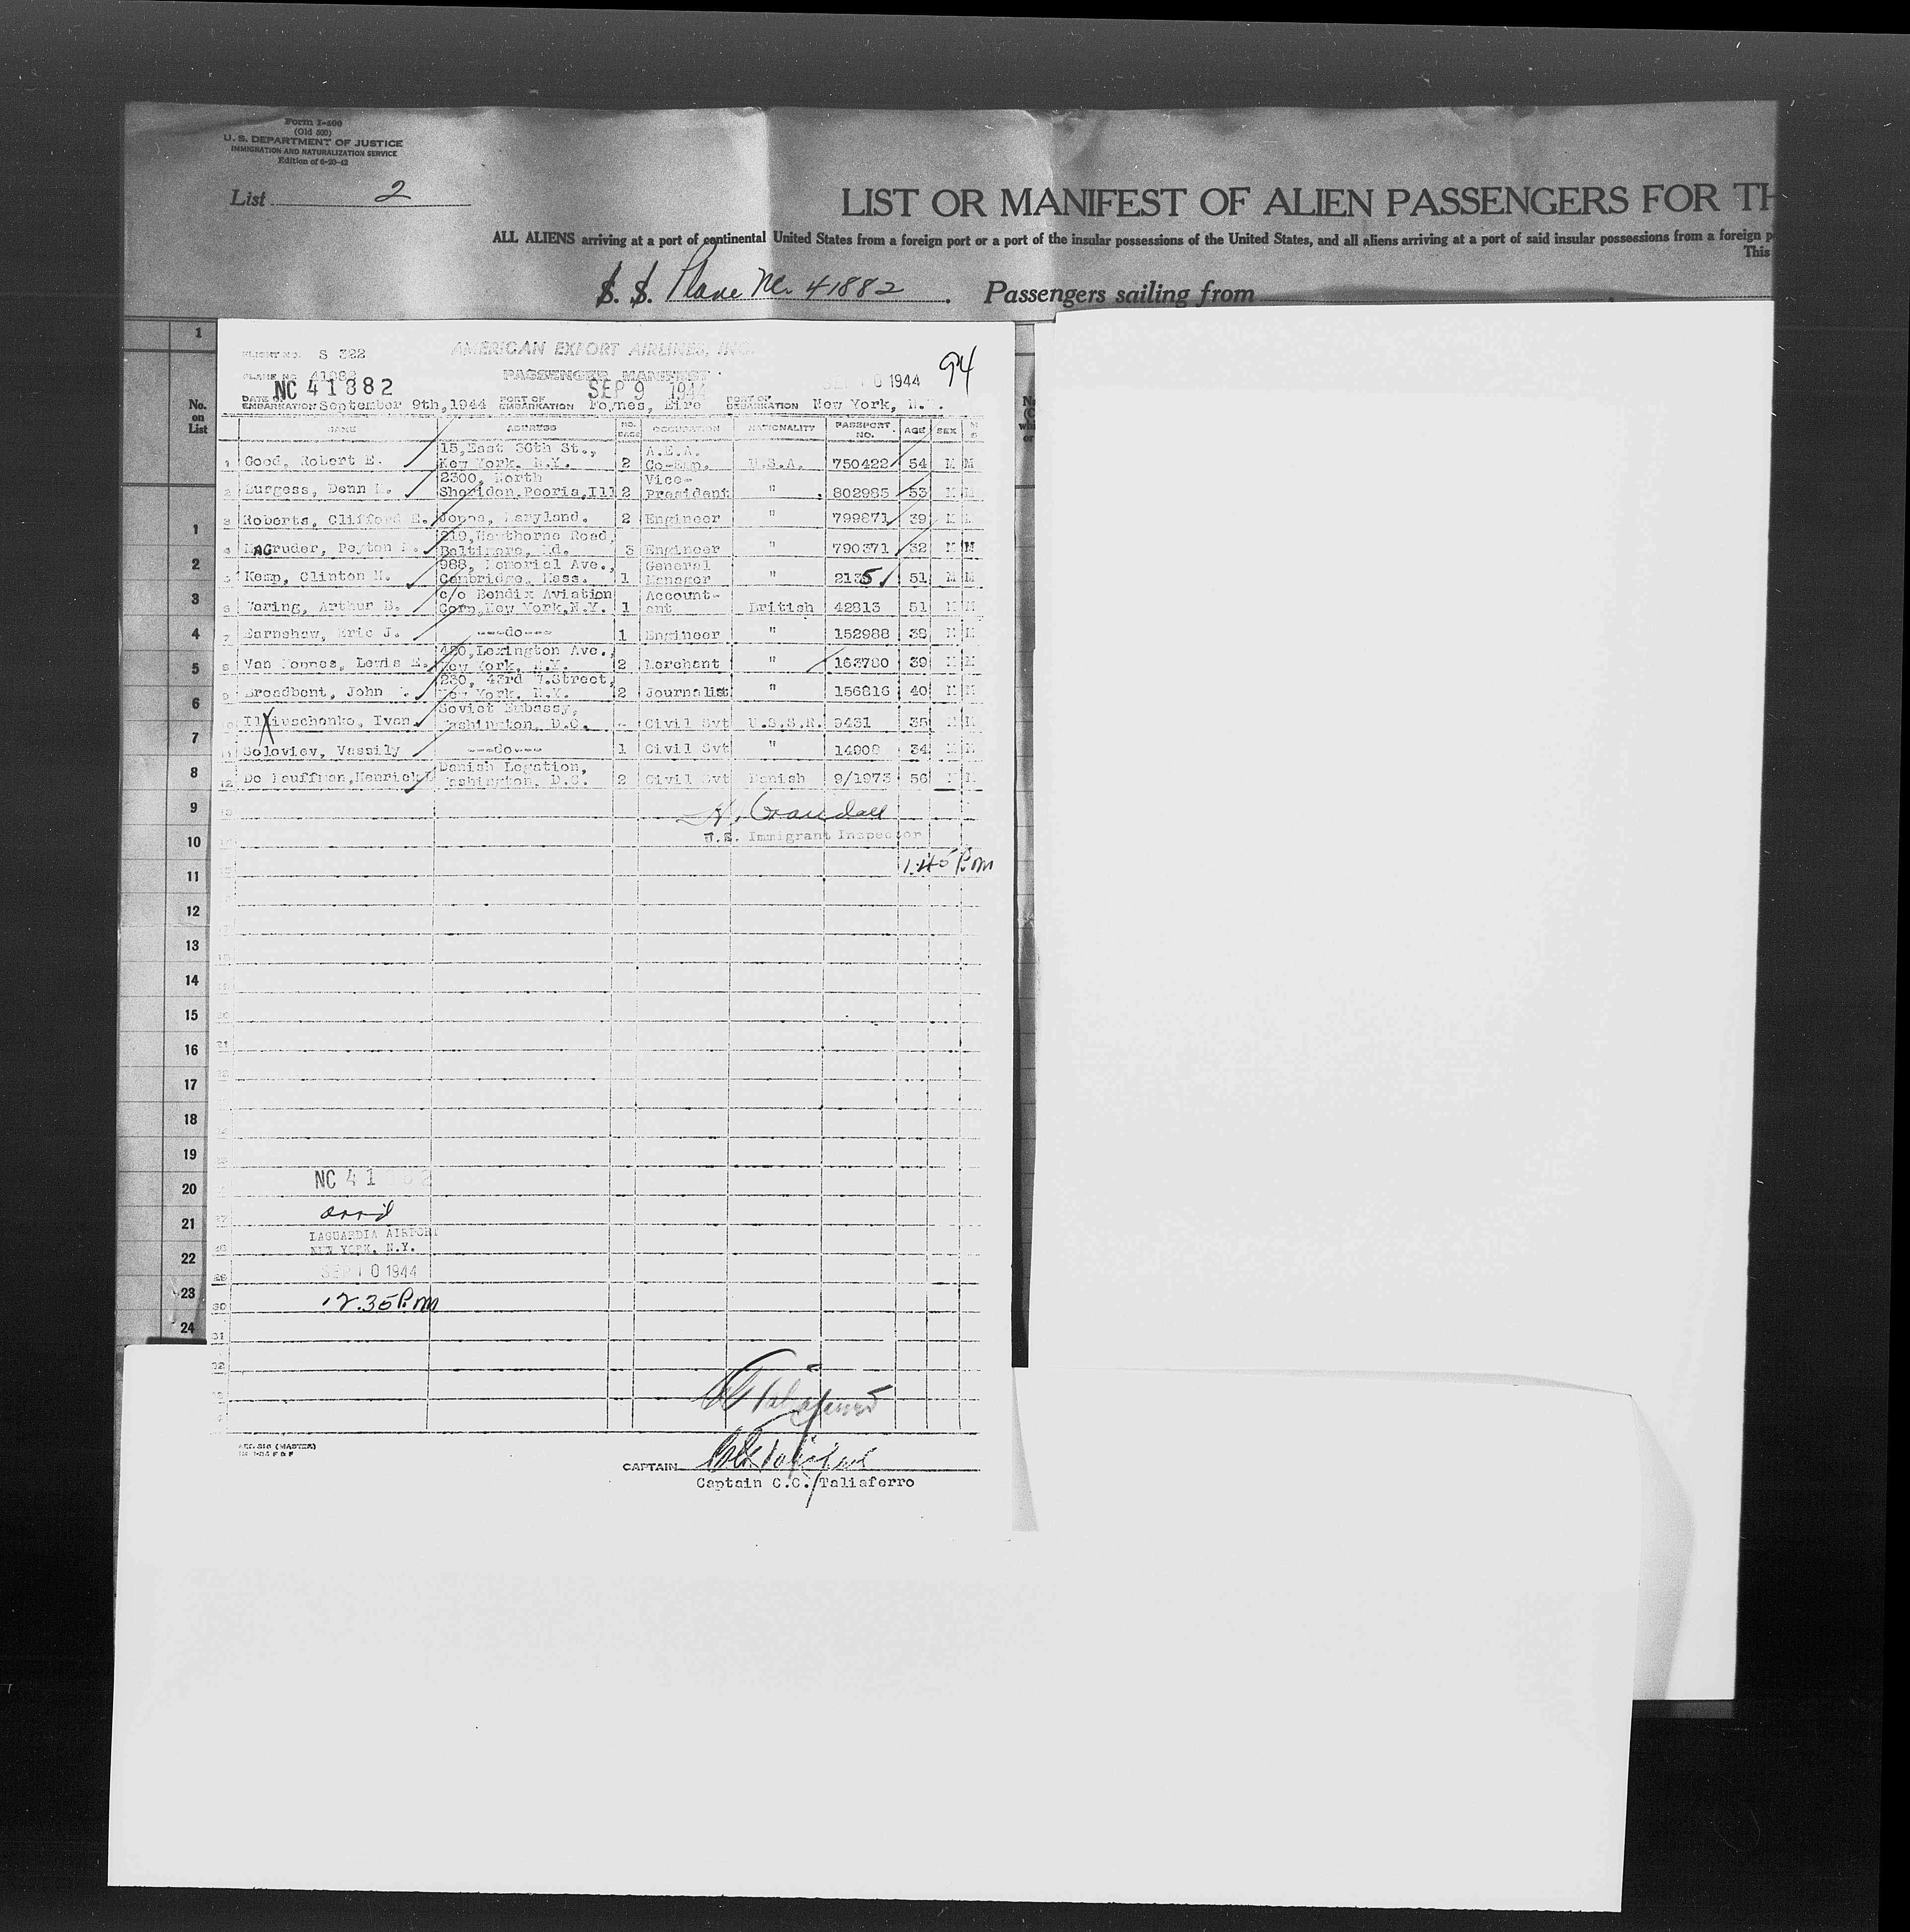 Form I-400
(Old 500)
U. S. DEPARTMENT OF JUSTICE
IMMIGRATION AND NATURALIZATION SERVICE
Edition of 6-20-42
List 2
LIST OR MANIFEST OF ALIEN PASSENGERS FOR TH
ALL ALIENS arriving at a port of continental United States from a foreign port or a port of the insular possessions of the United States, and all aliens arriving at a port of said insular possessions from a foreign p
This
S. S. Plane NC. 41882 . Passengers sailing from
FLIGHT NO. S 322 AMERICAN EXPORT AIRLINES, INC. 94
PLANE NO 41882 PASSENGER MANIFEST
NC 41882 SEP 9 1944 SEP 10 1944
DATE OF EMBARKATION September 9th, 1944 PORT OF EMBARKATION Foynes, Eire PORT OF DEBARKATION New York, N.Y.
NAME ADDRESS NO. OCCUPATION NATIONALITY PASSPORT NO. AGE SEX M S
1 Good, Robert E. 15, East 36th St., New York. N.Y. 2 A.E.A. Co-Emp. U.S.A. 750422 54 M M
2 Burgess, Denn 2300, North Sheridon, Peoria, Ill 2 Vice-President " 802985 53 M M
3 Roberts, Clifford E. Joppa, Maryland. 2 Engineer " 799871 39 M M
4 MAGruder, Peyton M. 219, Hawthorne Road, Baltimore, Md. 3 Engineer " 790371 32 M M
5 Kemp, Clinton H. 988, Memorial Ave., Cambridge, Mass. 1 General Manager " 2135 51 M M
6 Waring, Arthur B. c/o Bendix Aviation Corp, New York, N.Y. 1 Accountant British 42813 51 M M
7 Earnshaw, Eric J. ---do--- 1 Engineer " 152988 38 M M
8 Van Moppes, Lewis E. 420, Lexington Ave., New York, N.Y. 2 Merchant " 163780 39 M M
9 Broadbent, John 230, 43rd W. Street, New York. N.Y. 2 Journalist " 156816 40 M M
10 Iliuschenko, Ivan. Soviet Embassy, Washington, D.C. - Civil Svt U.S.S.R. 9431 35 M M
11 Soloviev, Vassily ---do--- 1 Civil Svt " 14908 34 M M
12 De Kauffman, Henrick L Danish Legation, Washington. D.C. 2 Civil Svt Danish 9/1973 56 M M
H. Crandall
U.S. Immigrant Inspector
1.45 P.m
No.
on
List
1
1
2
3
4
5
6
7
8
9
10
11
12
13
14
15
16
17
18
19
20
21
22
23
24
NC 41882
arrd
LAGUARDIA AIRPORT
NEW YORK, N.Y.
SEP 10 1944
12.35 P.m
CAPTAIN
Captain C.C. Taliaferro